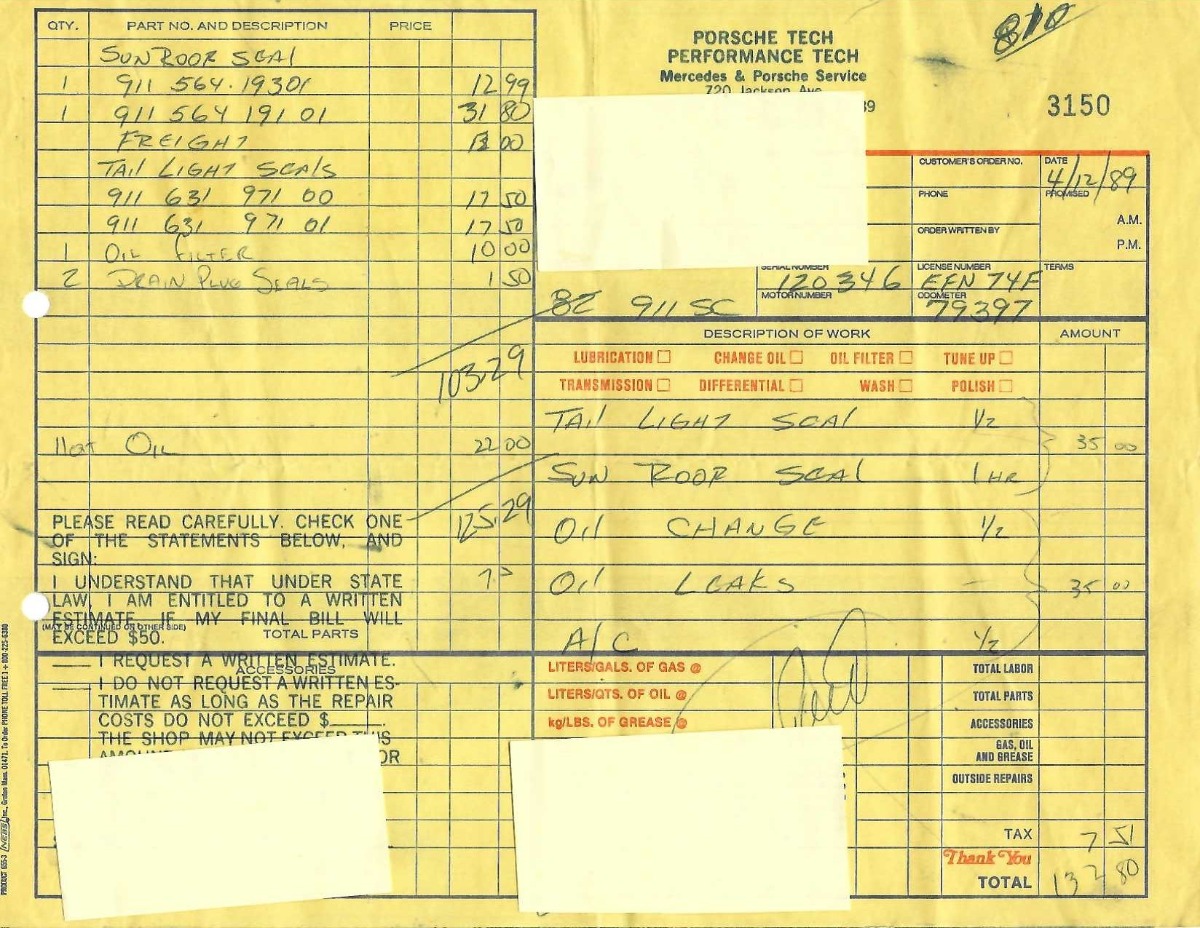 QTY. PART NO. AND DESCRIPTION PRICE
SUNROOF SEAL
1 911 564.19301 12 99
1 911 564 191 01 31 80
FREIGHT 00
TAIL LIGHT SEALS
911 631 971 00 17 50
911 631 971 01 17 50
1 OIL FILTER 10 00
2 DRAIN PLUG SEALS 1 50
103.29
OIL 22 00
125.29
PLEASE READ CAREFULLY. CHECK ONE
OF THE STATEMENTS BELOW, AND
SIGN:
I UNDERSTAND THAT UNDER STATE
LAW, I AM ENTITLED TO A WRITTEN
ESTIMATE, IF MY FINAL BILL WILL
EXCEED $50.
(MAY BE CONTINUED ON OTHER SIDE)
TOTAL PARTS
I REQUEST A WRITTEN ESTIMATE.
ACCESSORIES
I DO NOT REQUEST A WRITTEN ES-
TIMATE AS LONG AS THE REPAIR
COSTS DO NOT EXCEED $
THE SHOP MAY NOT EXCEED THIS
OR
810
PORSCHE TECH
PERFORMANCE TECH
Mercedes & Porsche Service
720 Jackson Ave
39
3150
CUSTOMER'S ORDER NO. DATE
4/12/89
PHONE PROMISED
A.M.
ORDER WRITTEN BY
P.M.
SERIAL NUMBER LICENSE NUMBER TERMS
120346 EFN 74F
MOTOR NUMBER ODOMETER
82 911 SC 79397
DESCRIPTION OF WORK AMOUNT
LUBRICATION CHANGE OIL OIL FILTER TUNE UP
TRANSMISSION DIFFERENTIAL WASH POLISH
TAIL LIGHT SEAL 1/2
35 00
SUN ROOF SEAL 1 HR
OIL CHANGE 1/2
OIL LEAKS -
35 00
A/C 1/2
LITERS/GALS. OF GAS @ TOTAL LABOR
LITERS/QTS. OF OIL @ TOTAL PARTS
kg/LBS. OF GREASE @ ACCESSORIES
GAS, OIL
AND GREASE
OUTSIDE REPAIRS
TAX 7 51
Thank You
TOTAL 132 80
PRODUCT 655-3 NEBS Inc., Groton Mass. 01471. To Order PHONE TOLL FREE 1 + 800-225-6380